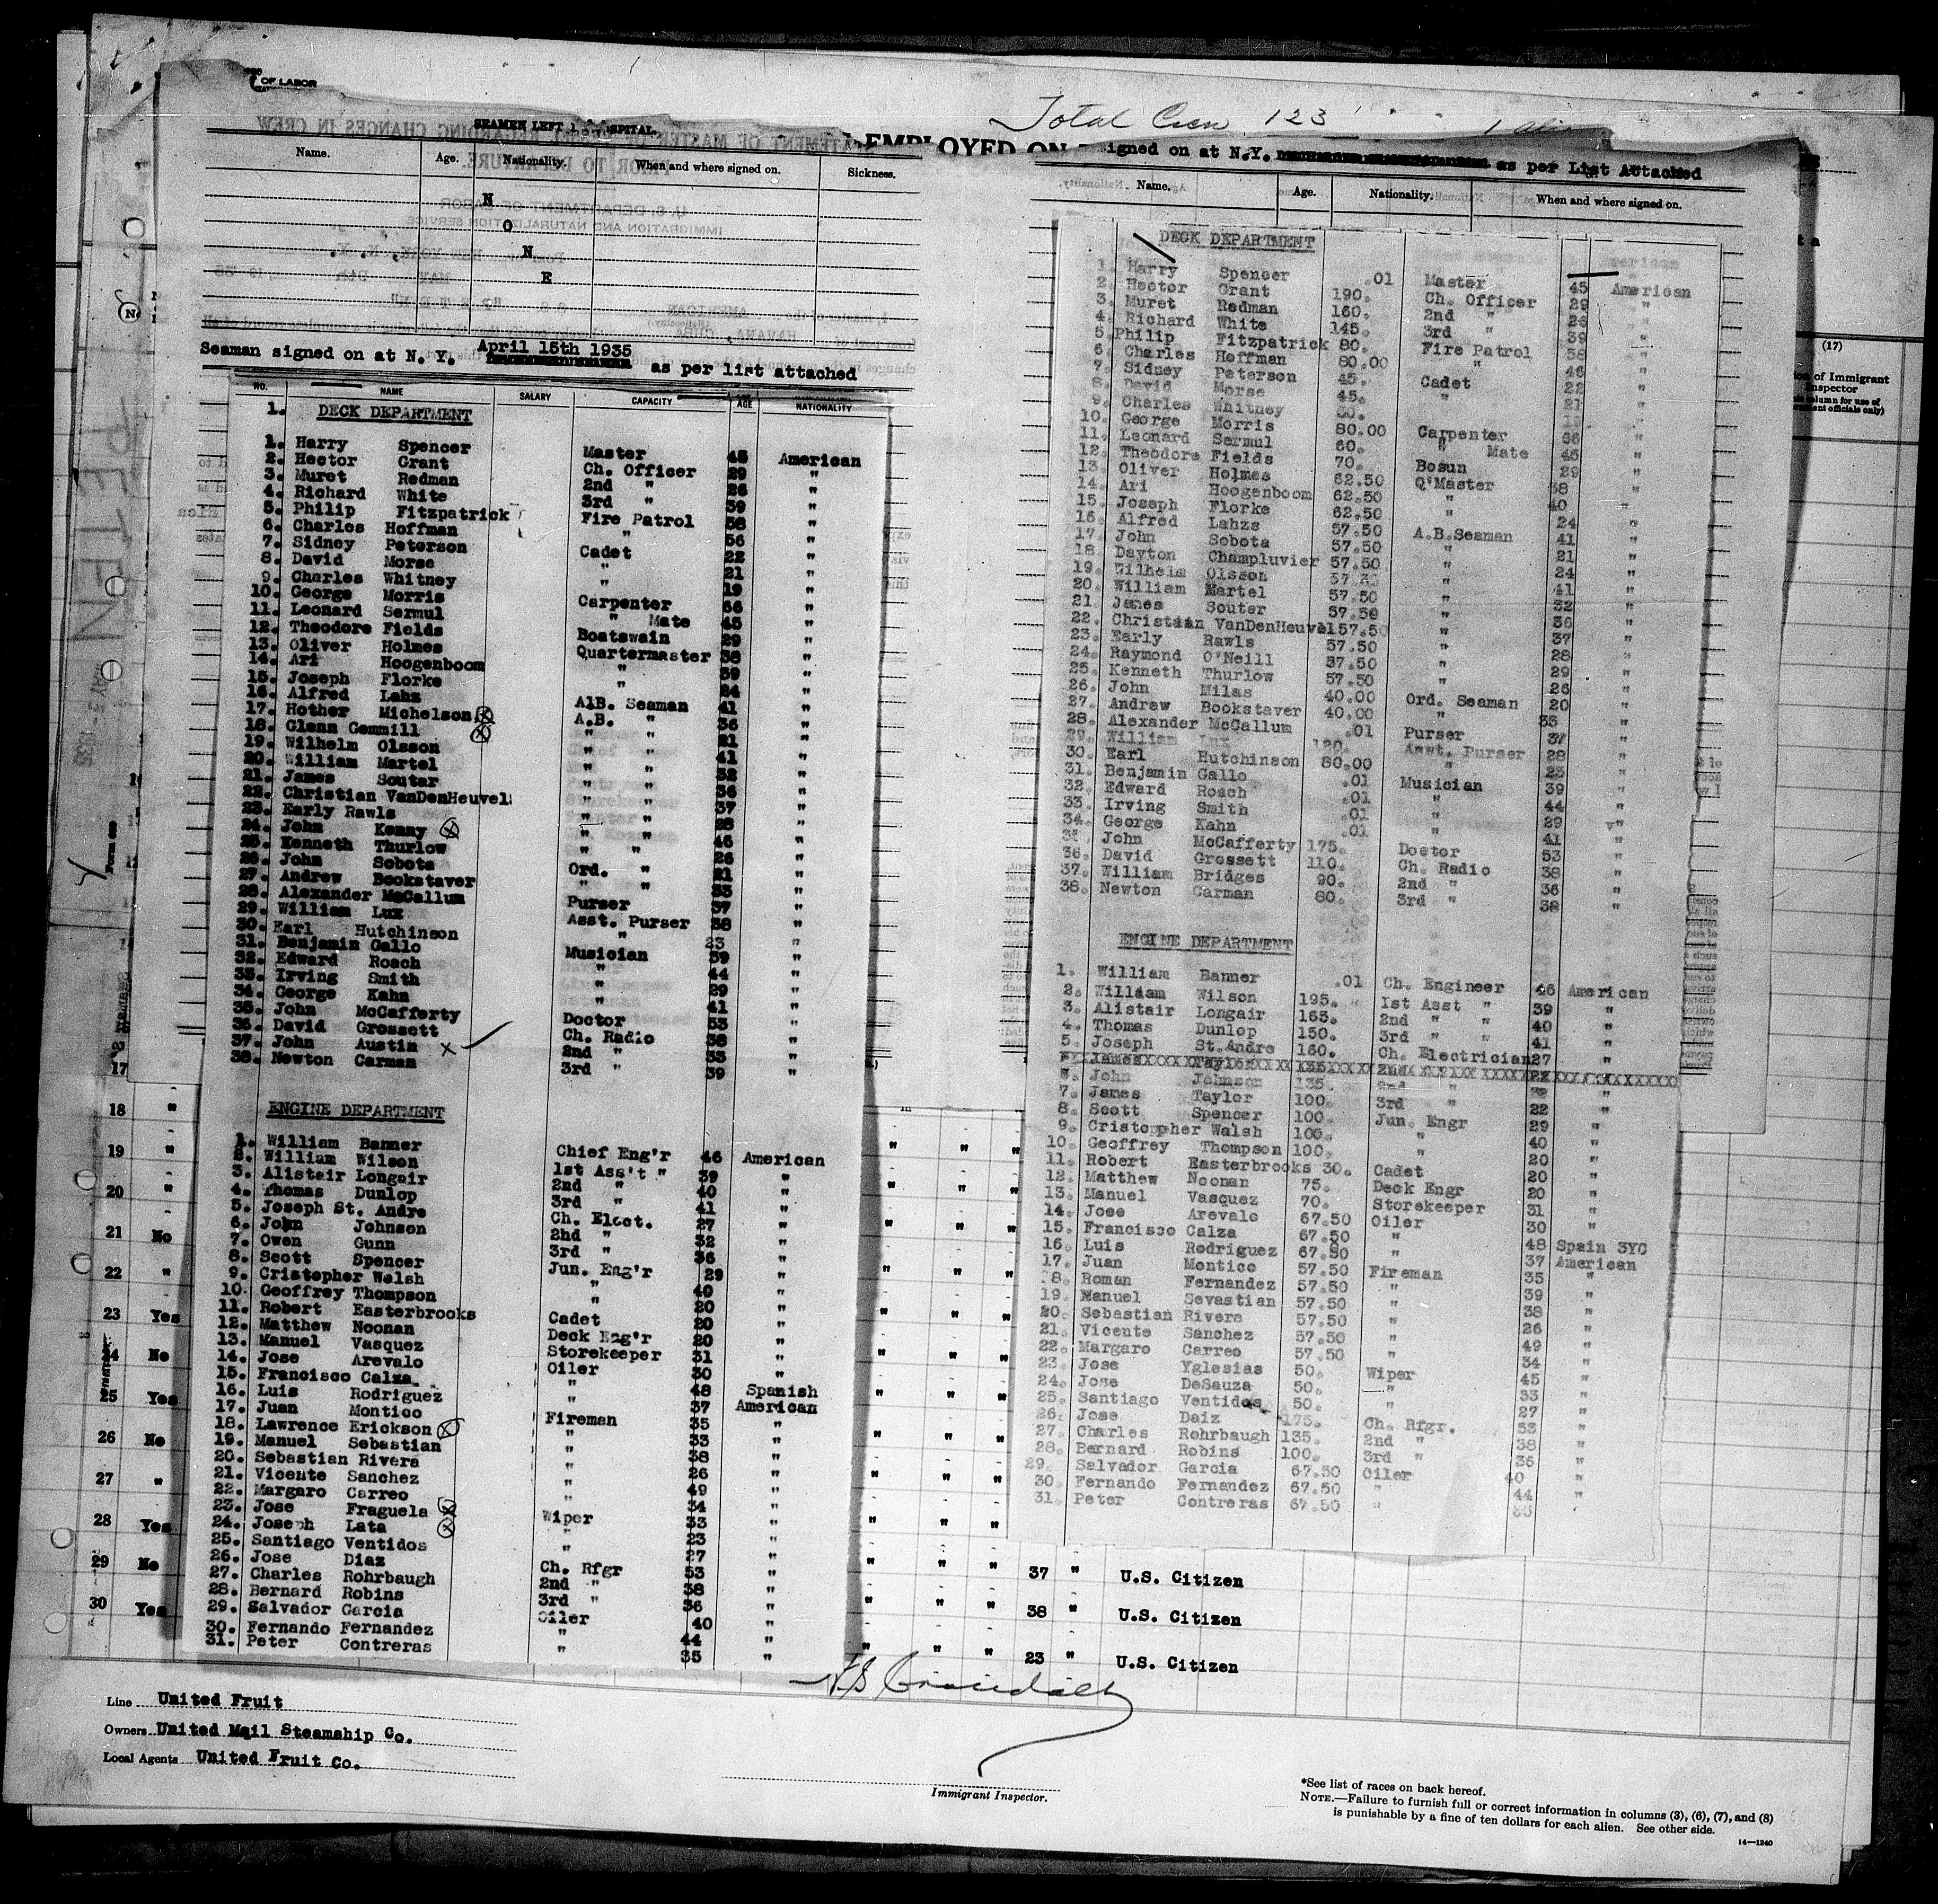 OF LABOR
Total Crew 123
SEAMEN LEFT IN HOSPITAL.
EMPLOYED ON
Name. Age. Nationality. When and where signed on. Sickness.
N
O
N
E
Seaman signed on at N. Y. April 15th 1935 as per list attached
NO. NAME SALARY CAPACITY AGE NATIONALITY
1. DECK DEPARTMENT
1. Harry Spencer Master 45 American
2. Hector Grant Ch. Officer 29 "
3. Muret Redman 2nd " 26 "
4. Richard White 3rd " 39 "
5. Philip Fitzpatrick Fire Patrol 58 "
6. Charles Hoffman " 56 "
7. Sidney Peterson Cadet 22 "
8. David Morse " 21 "
9. Charles Whitney " 19 "
10. George Morris Carpenter 66 "
11. Leonard Sermul " Mate 45 "
12. Theodore Fields Boatswain 29 "
13. Oliver Holmes Quartermaster 38 "
14. Ari Hoogenboom " 39 "
15. Joseph Florke " 24 "
16. Alfred Lahz AlB. Seaman 41 "
17. Hother Michelson A.B. " 36 "
18. Glenn Gemmill " " 21 "
19. Wilhelm Olsson " " 41 "
20. William Martel " " 32 "
21. James Soutar " " 36 "
22. Christian VanDenHeuvel " " 37 "
23. Early Rawls " " 28 "
24. John Kenny " " 46 "
25. Kenneth Thurlow " " 26 "
26. John Sobota Ord. " 21 "
27. Andrew Bookstaver " " 33 "
28. Alexander McCallum Purser 37 "
29. William Lux Asst. Purser 38 "
30. Earl Hutchinson " 23 "
31. Benjamin Gallo Musician 39 "
32. Edward Roach " 44 "
33. Irving Smith " 29 "
34. George Kahn " 41 "
35. John McCafferty Doctor 53 "
36. David Grossett Ch. Radio 38 "
37. John Austin x 2nd " 33 "
38. Newton Carman 3rd " 39 "
ENGINE DEPARTMENT
1. William Banner Chief Eng'r 46 American
2. William Wilson 1st Ass't " 39 "
3. Alistair Longair 2nd " 40 "
4. Thomas Dunlop 3rd " 41 "
5. Joseph St. Andre Ch. Elect. 27 "
6. John Johnson 2nd " 32 "
7. Owen Gunn 3rd " 36 "
8. Scott Spencer Jun. Eng'r 29 "
9. Cristopher Walsh " 40 "
10. Geoffrey Thompson " 20 "
11. Robert Easterbrooks Cadet 20 "
12. Matthew Noonan Deck Eng'r 20 "
13. Manuel Vasquez Storekeeper 31 "
14. Jose Arevalo Oiler 30 "
15. Francisco Calza " 48 Spanish
16. Luis Rodriguez " 37 American
17. Juan Montico Fireman 35 "
18. Lawrence Erickson " 33 "
19. Manuel Sebastian " 38 "
20. Sebastian Rivera " 26 "
21. Vicente Sanchez " 49 "
22. Margaro Carreo " 34 "
23. Jose Fraguela Wiper 33 "
24. Joseph Lata " 23 "
25. Santiago Ventidos " 27 "
26. Jose Diaz Ch. Rfgr 53 "
27. Charles Rohrbaugh 2nd " 38 "
28. Bernard Robins 3rd " 36 "
29. Salvador Garcia Oiler 40 "
30. Fernando Fernandez " 44 "
31. Peter Contreras " 35 "
signed on at N.Y. as per List Attached
Name. Age. Nationality. When and where signed on.
DECK DEPARTMENT
1. Harry Spencer .01 Master 45 American
2. Hector Grant 190. Ch. Officer 29 "
3. Muret Redman 160. 2nd " 26 "
4. Richard White 145. 3rd " 39 "
5. Philip Fitzpatrick 80. Fire Patrol 58 "
6. Charles Hoffman 80.00 " 46 "
7. Sidney Peterson 45. Cadet 22 "
8. David Morse 45. " 21 "
9. Charles Whitney 30.
10. George Morris 80.00 Carpenter 66 "
11. Leonard Sermul 60. " Mate 45 "
12. Theodore Fields 70. Bosun 29 "
13. Oliver Holmes 62.50 Q'Master 38 "
14. Ari Hoogenboom 62.50 " 40 "
15. Joseph Florke 62.50 " 24 "
16. Alfred Lahzs 57.50 A.B.Seaman 41 "
17. John Sobota 57.50 " 21 "
18 Dayton Champluvier 57.50 " 24 "
19. Wilhelm Olsson " 41 "
20. William Martel 57.50 " 32 "
21. James Souter 57.50 " 36 "
22. Christian VanDenHeuvel 57.50 " 37 "
23. Early Rawls 57.50 " 28 "
24. Raymond O'Neill 57.50 " 29 "
25. Kenneth Thurlow 57.50 " 26 "
26. John Milas 40.00 Ord. Seaman 20 "
27. Andrew Bookstaver 40.00 " 33 "
28. Alexander McCallum .01 Purser 37 "
29. William Lux 120. Asst. Purser 28 "
30. Earl Hutchinson 80.00 " 23 "
31. Benjamin Gallo .01 Musician 39 "
32. Edward Roach .01 " 44 "
33. Irving Smith .01 " 29 "
34. George Kahn .01 " 41 "
35 John McCafferty 175. Doctor 53 "
36. David Grossett 110. Ch. Radio 38 "
37. William Bridges 90. 2nd " 36 "
38. Newton Carman 80. 3rd " 38 "
ENGINE DEPARTMENT
1. William Banner .01 Ch. Engineer 46 American
2. William Wilson 195. 1st Asst " 39 "
3. Alistair Longair 165. 2nd " " 40 "
4. Thomas Dunlop 150. 3rd " " 41 "
5. Joseph St.Andre 160. Ch. Electrician 27 "
6. John Johnson 135. 2nd "
7. James Taylor 100. 3rd " 22 "
8. Scott Spencer 100. Jun. Engr 29 "
9. Cristopher Walsh 100. " 40 "
10. Geoffrey Thompson 100. " 20 "
11. Robert Easterbrooks 30. Cadet 20 "
12. Matthew Noonan 75. Deck Engr 20 "
13. Manuel Vasquez 70. Storekeeper 31 "
14. Jose Arevalo 67.50 Oiler 30 "
15. Francisco Calza 67.50 " 48 Spain 3YC
16. Luis Rodriguez 67.50 " 37 American
17. Juan Montico 57.50 Fireman 35 "
18. Roman Fernandez 57.50 " 39 "
19. Manuel Sevastian 57.50 " 38 "
20. Sebastian Rivera 57.50 " 26 "
21. Vicente Sanchez 57.50 " 49 "
22. Margaro Carreo 57.50 " 34 "
23. Jose Yglesias 50. Wiper 45 "
24. Jose DeSauza 50. " 33 "
25. Santiago Ventidos 50. " 27 "
26. Jose Daiz 175. Ch. Rfgr. 53 "
27. Charles Rohrbaugh 135. 2nd " 38 "
28. Bernard Robins 100. 3rd " 36 "
29. Salvador Garcia 67.50 Oiler 40 "
30. Fernando Fernandez 67.50 " 44 "
31. Peter Contreras 67.50 "
(17)
of Immigrant
Inspector
PETEN
MAY 3-1935
17
18 "
19 "
20 "
21 No
22 "
23 Yes
No
25 Yes
26 No
27 "
28 Yes
29 No 37 " U.S. Citizen
30 Yes 38 " U.S. Citizen
23 " U.S. Citizen
Line United Fruit
Owners United Mail Steamship Co.
Local Agents United Fruit Co.
Immigrant Inspector.
*See list of races on back hereof.
NOTE.—Failure to furnish full or correct information in columns (3), (6), (7), and (8)
is punishable by a fine of ten dollars for each alien. See other side.
14—1240